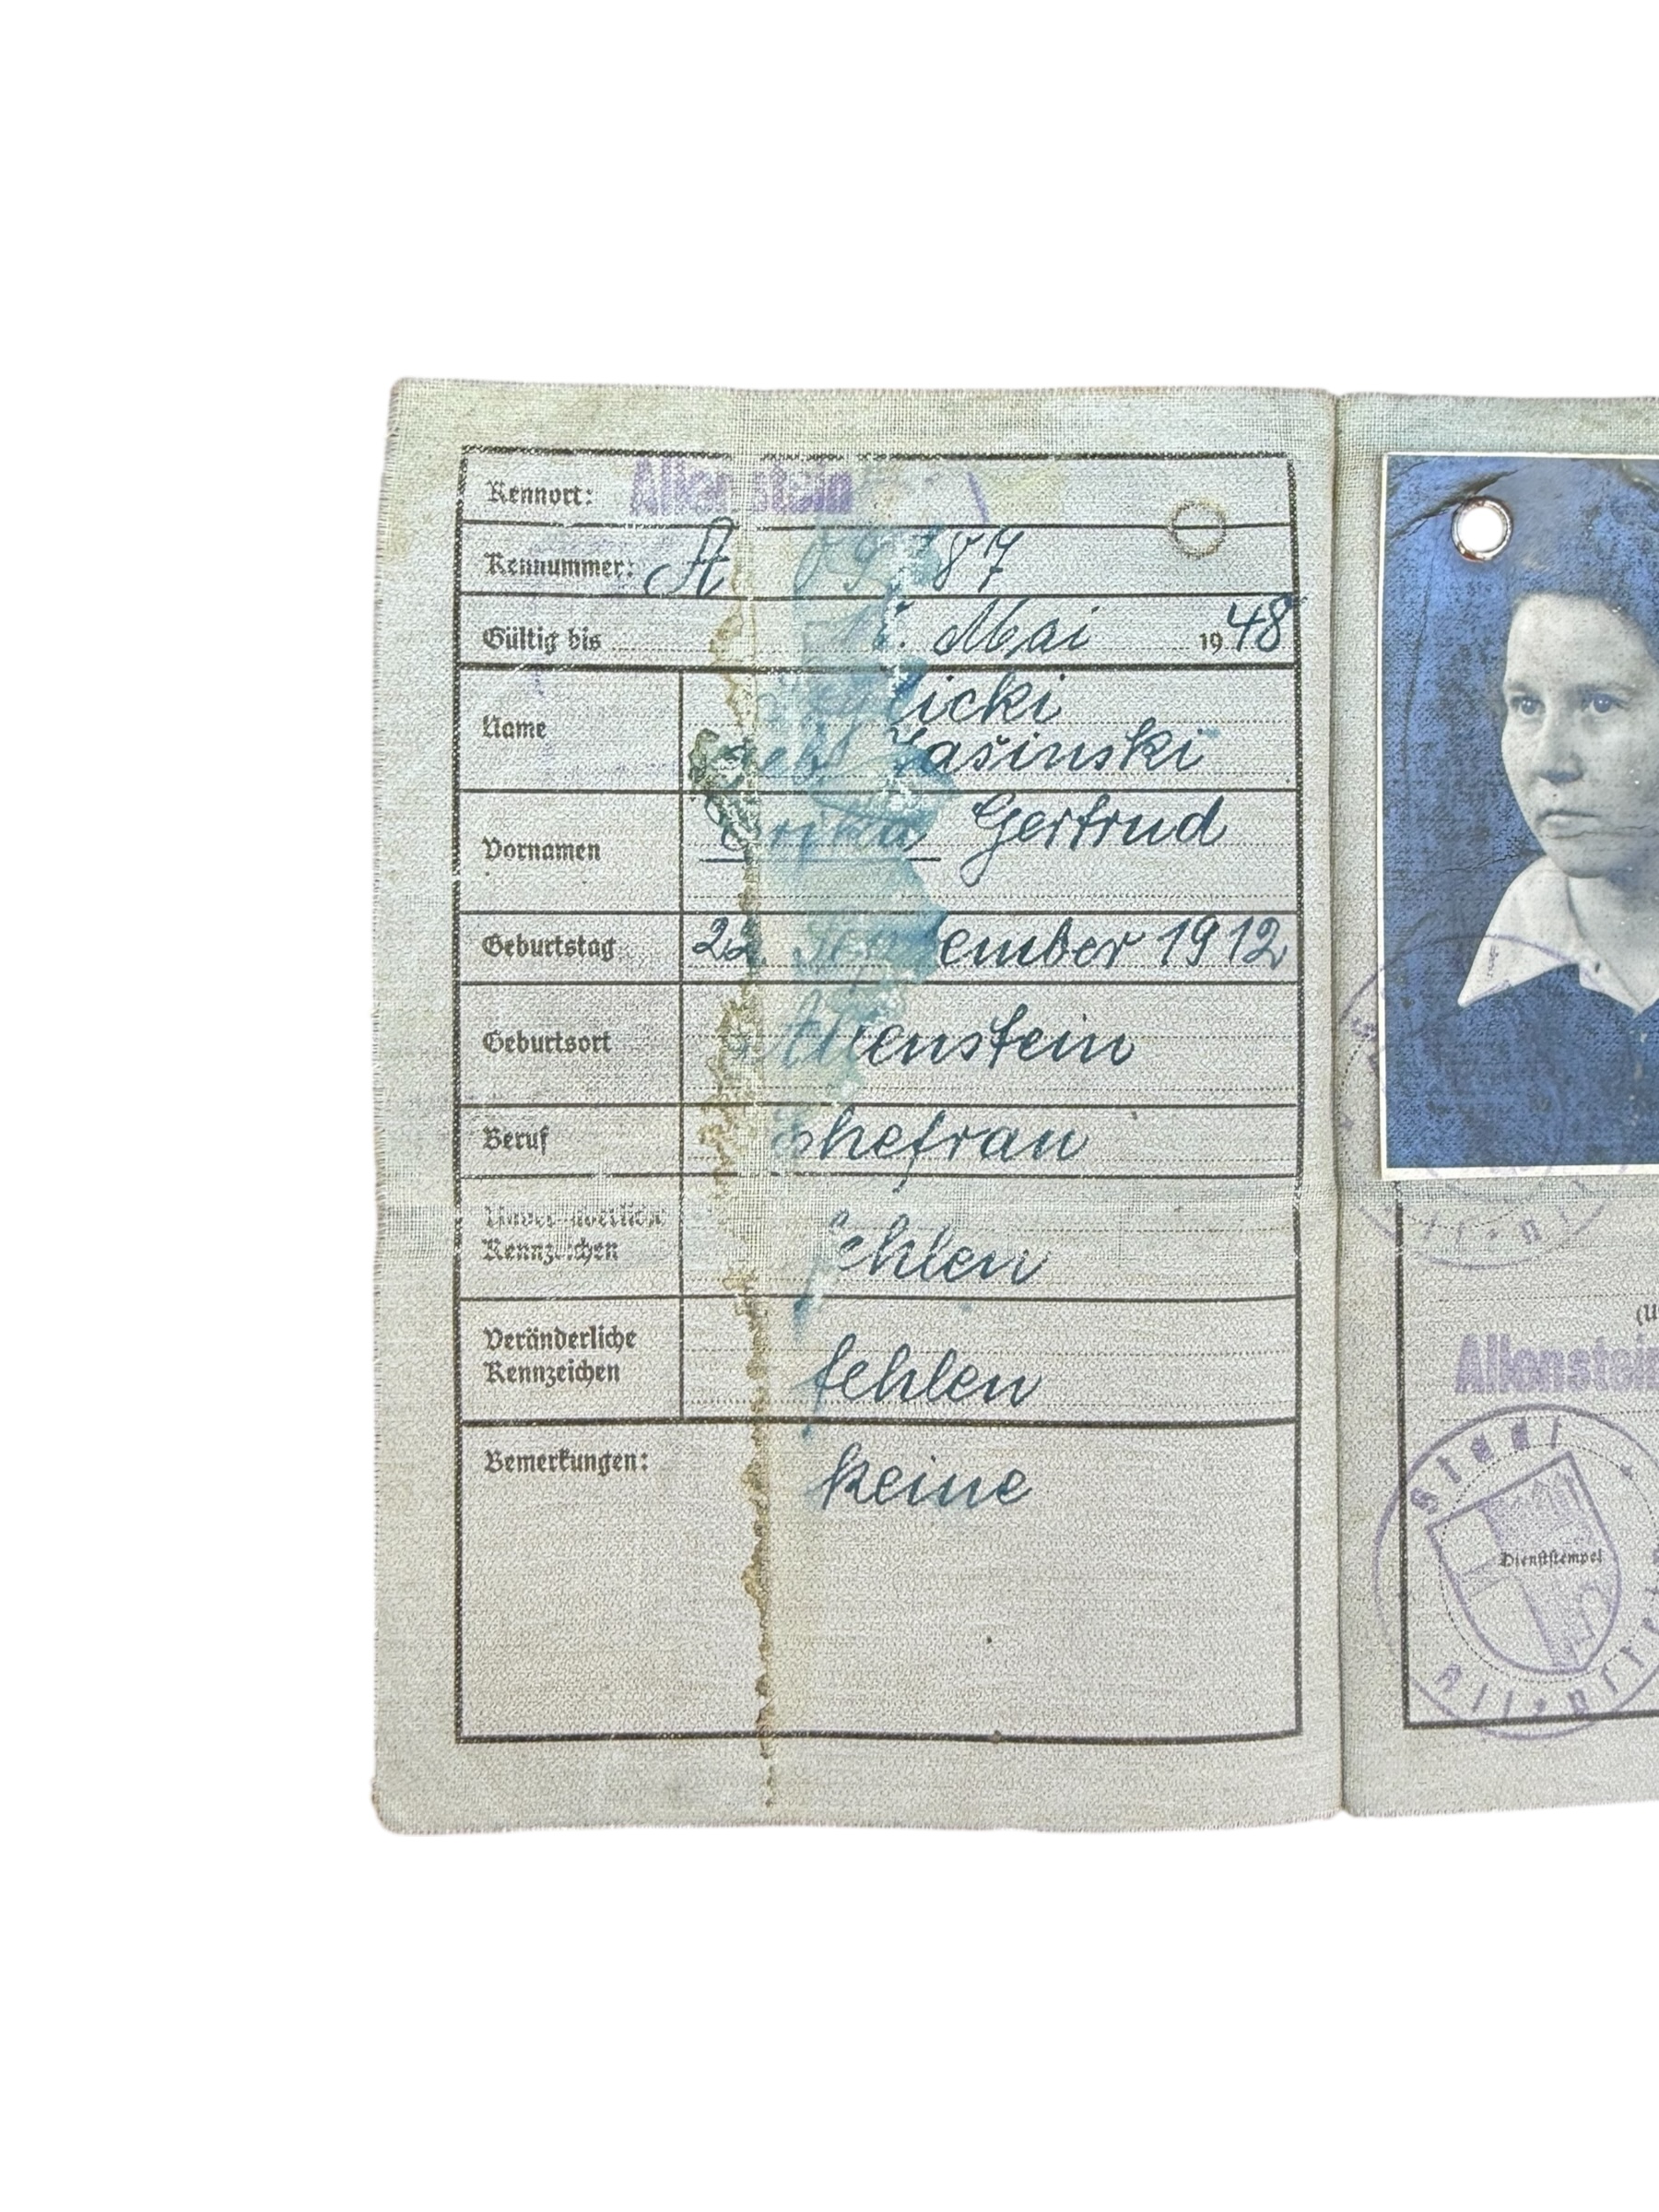 Kennort: Allenstein
Kennummer: A 87
Gültig bis Mai 1948
Name
geb.
Vornamen Erika Gertrud
Geburtstag 22. September 1912
Geburtsort Allenstein
Beruf Ehefrau
Unveränderliche
Kennzeichen fehlen
Veränderliche
Kennzeichen fehlen
Bemerkungen: keine
Allenstein
Stadt
Dienststempel